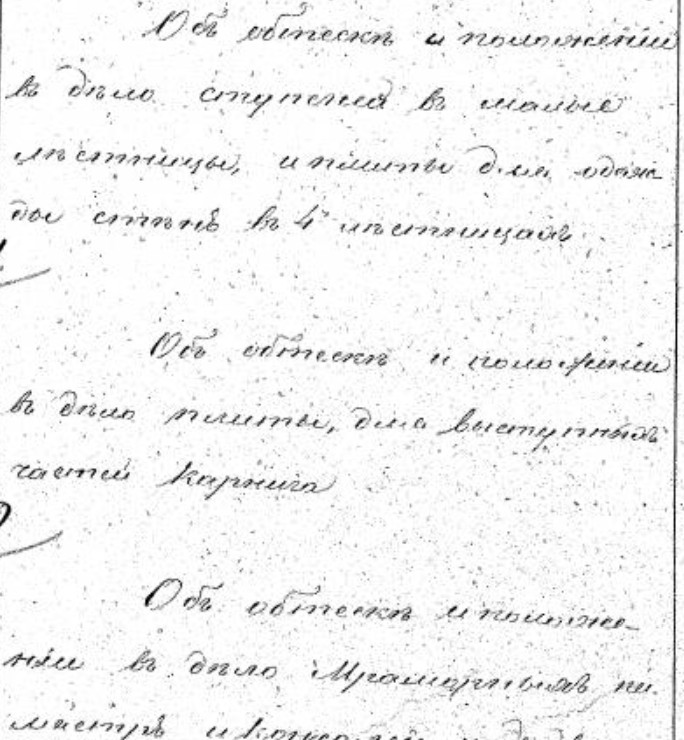 Объ обтескѣ и положеніи
въ дѣло ступеней въ малые
лѣстницы, и плиты для одеж-
ды стѣнъ въ 4х лѣстницахъ
Объ обтескѣ и положеніи
въ дѣло плиты, для выступныхъ
частей карниза
Объ обтескѣ и положе-
ніи въ дѣло Мраморныхъ пи-
лястръ и